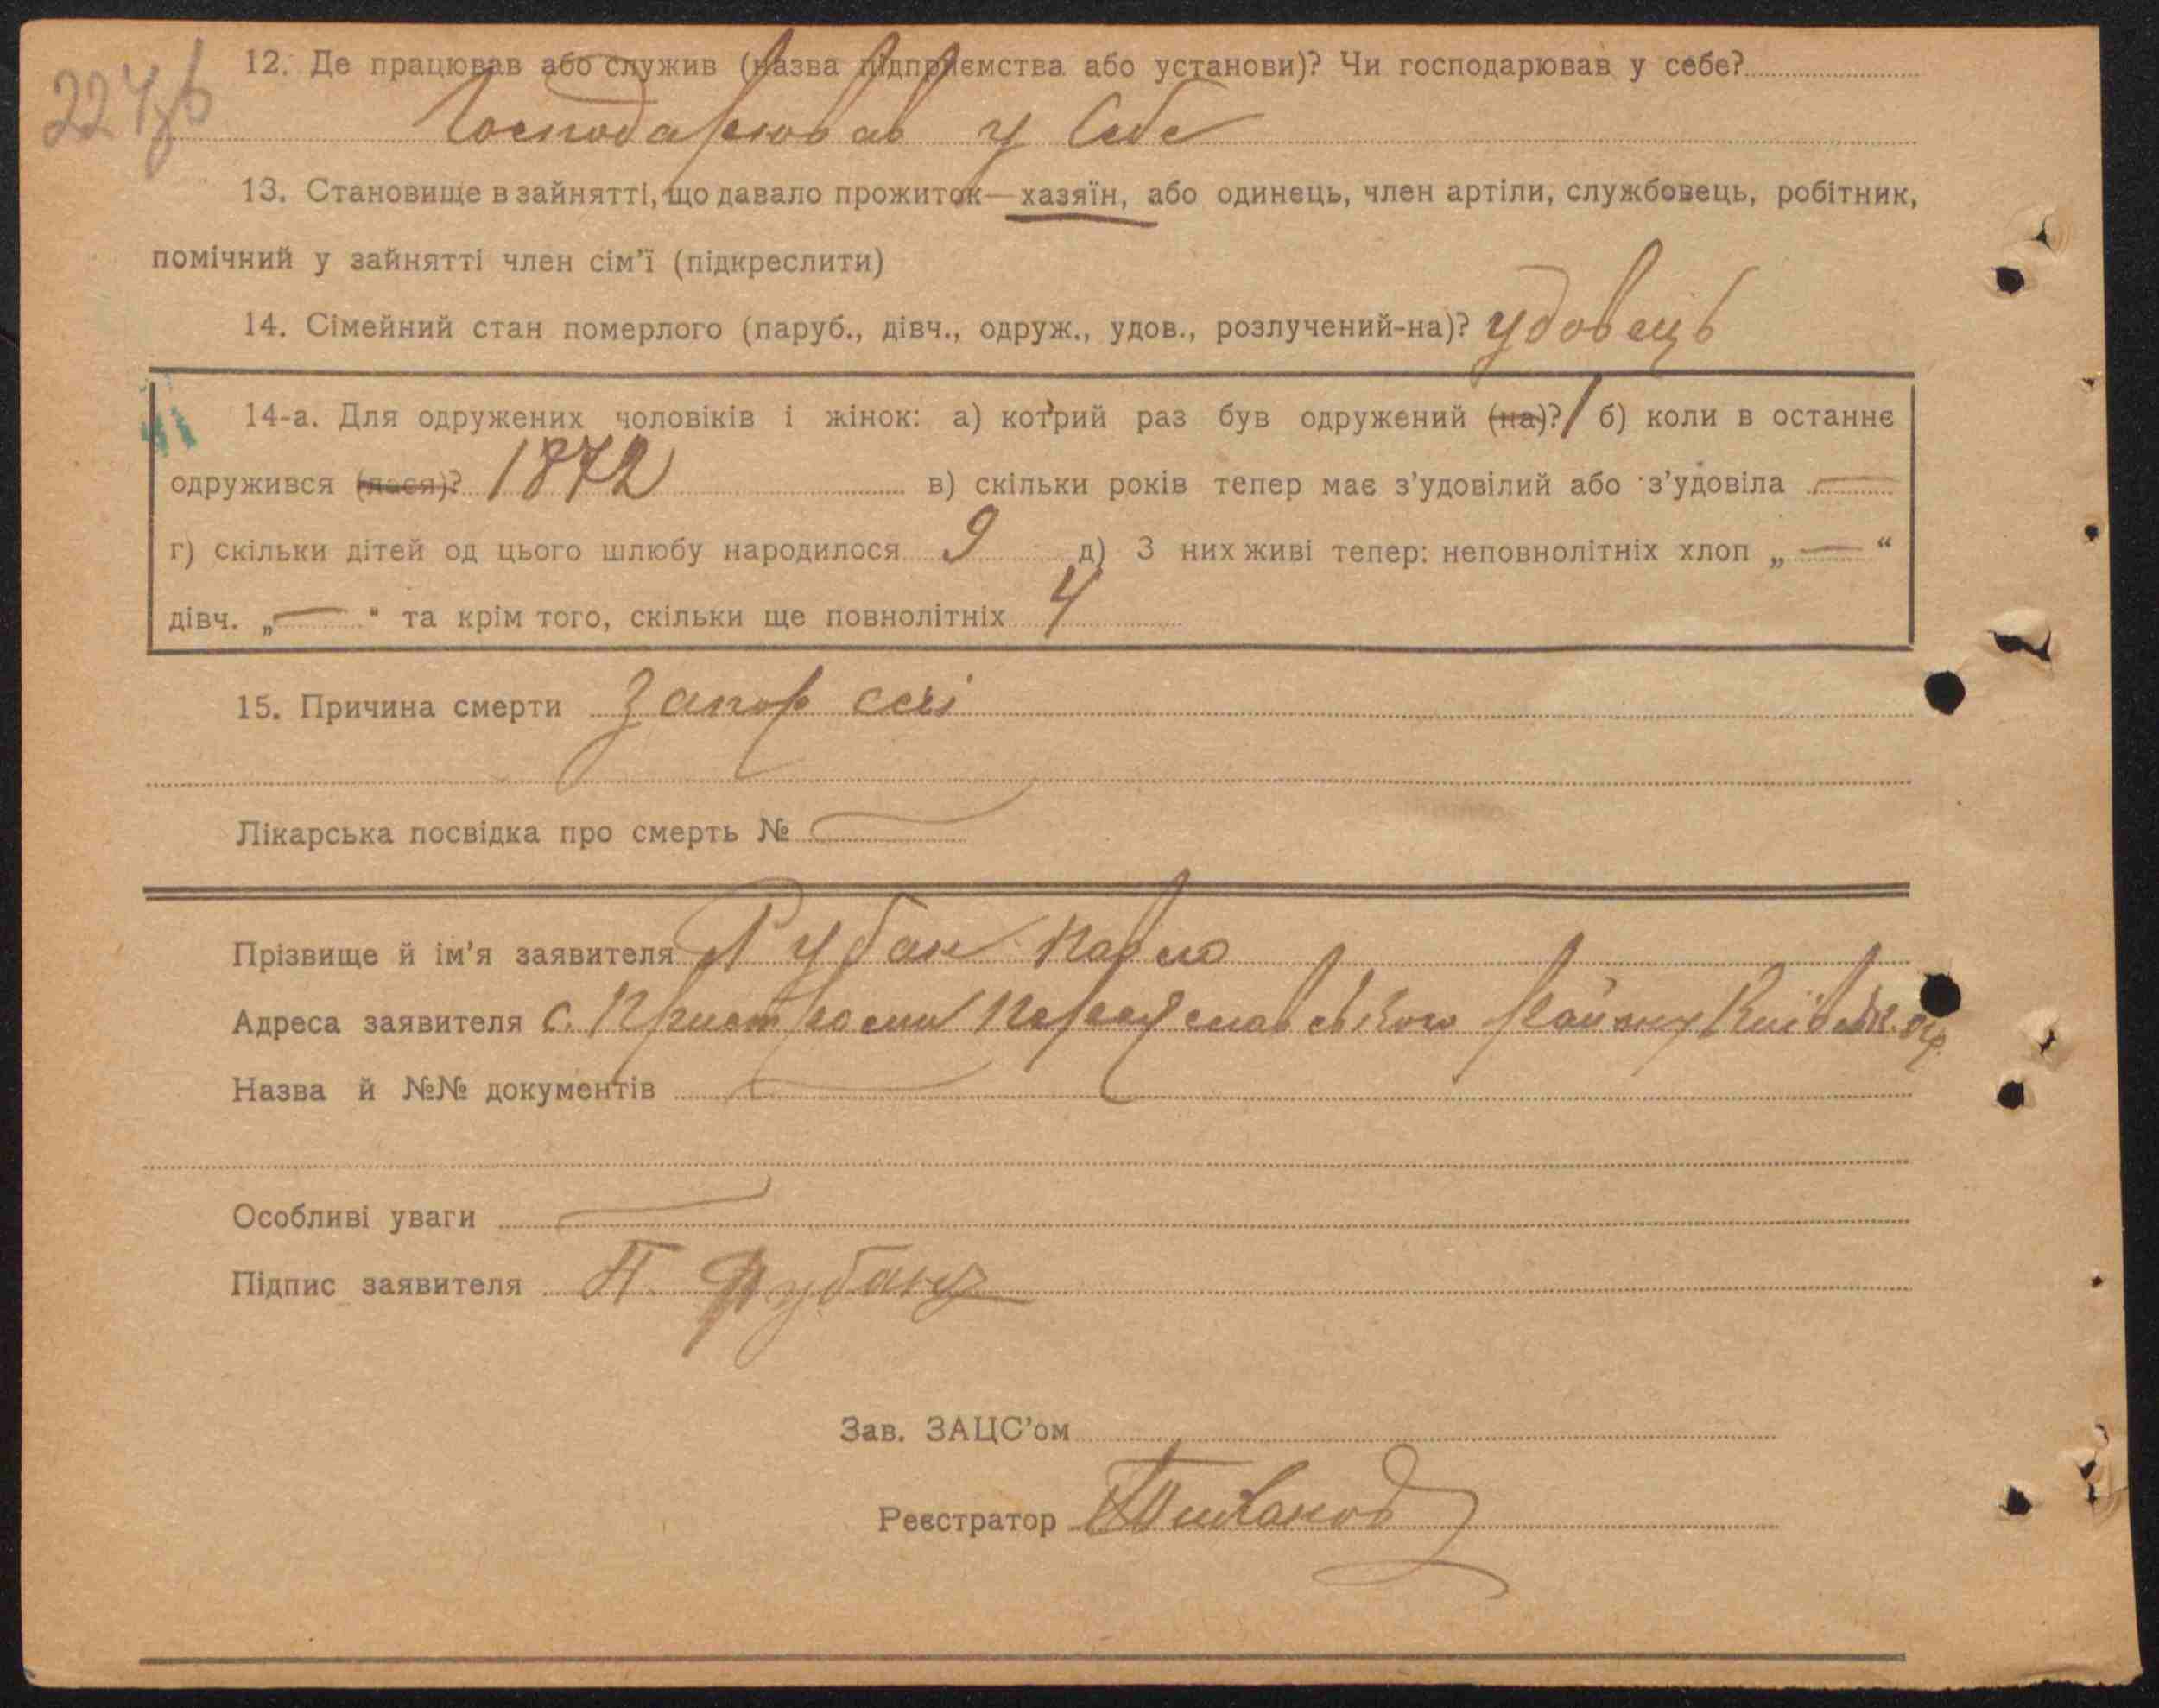 224зв
12. Де працював або служив (назва підприємства або установи)? Чи господарював у себе?
Господарював у Себе
13. Становище в зайнятті, що давало прожиток—хазяїн, або одинець, член артіли, службовець, робітник,
помічний у зайнятті член сім'ї (підкреслити)
14. Сімейний стан померлого (паруб., дівч., одруж., удов., розлучений-на)? удовець
14-а. Для одружених чоловіків і жінок: а) котрий раз був одружений (на)? 1 б) коли в останнє
одружився (лася)? 1872 в) скільки років тепер має з'удовілий або з'удовіла —
г) скільки дітей од цього шлюбу народилося 9 д) З них живі тепер: неповнолітніх хлоп „ — “
дівч. „ — “ та крім того, скільки ще повнолітніх 4
15. Причина смерти Запор сечі
Лікарська посвідка про смерть № —
Прізвище й ім'я заявителя Рубан Павло
Адреса заявителя с. Пристроми Переяславського Району Київськ. окр.
Назва й №№ документів —
Особливі уваги —
Підпис заявителя П. Рубан
Зав. ЗАЦС'ом
Реєстратор